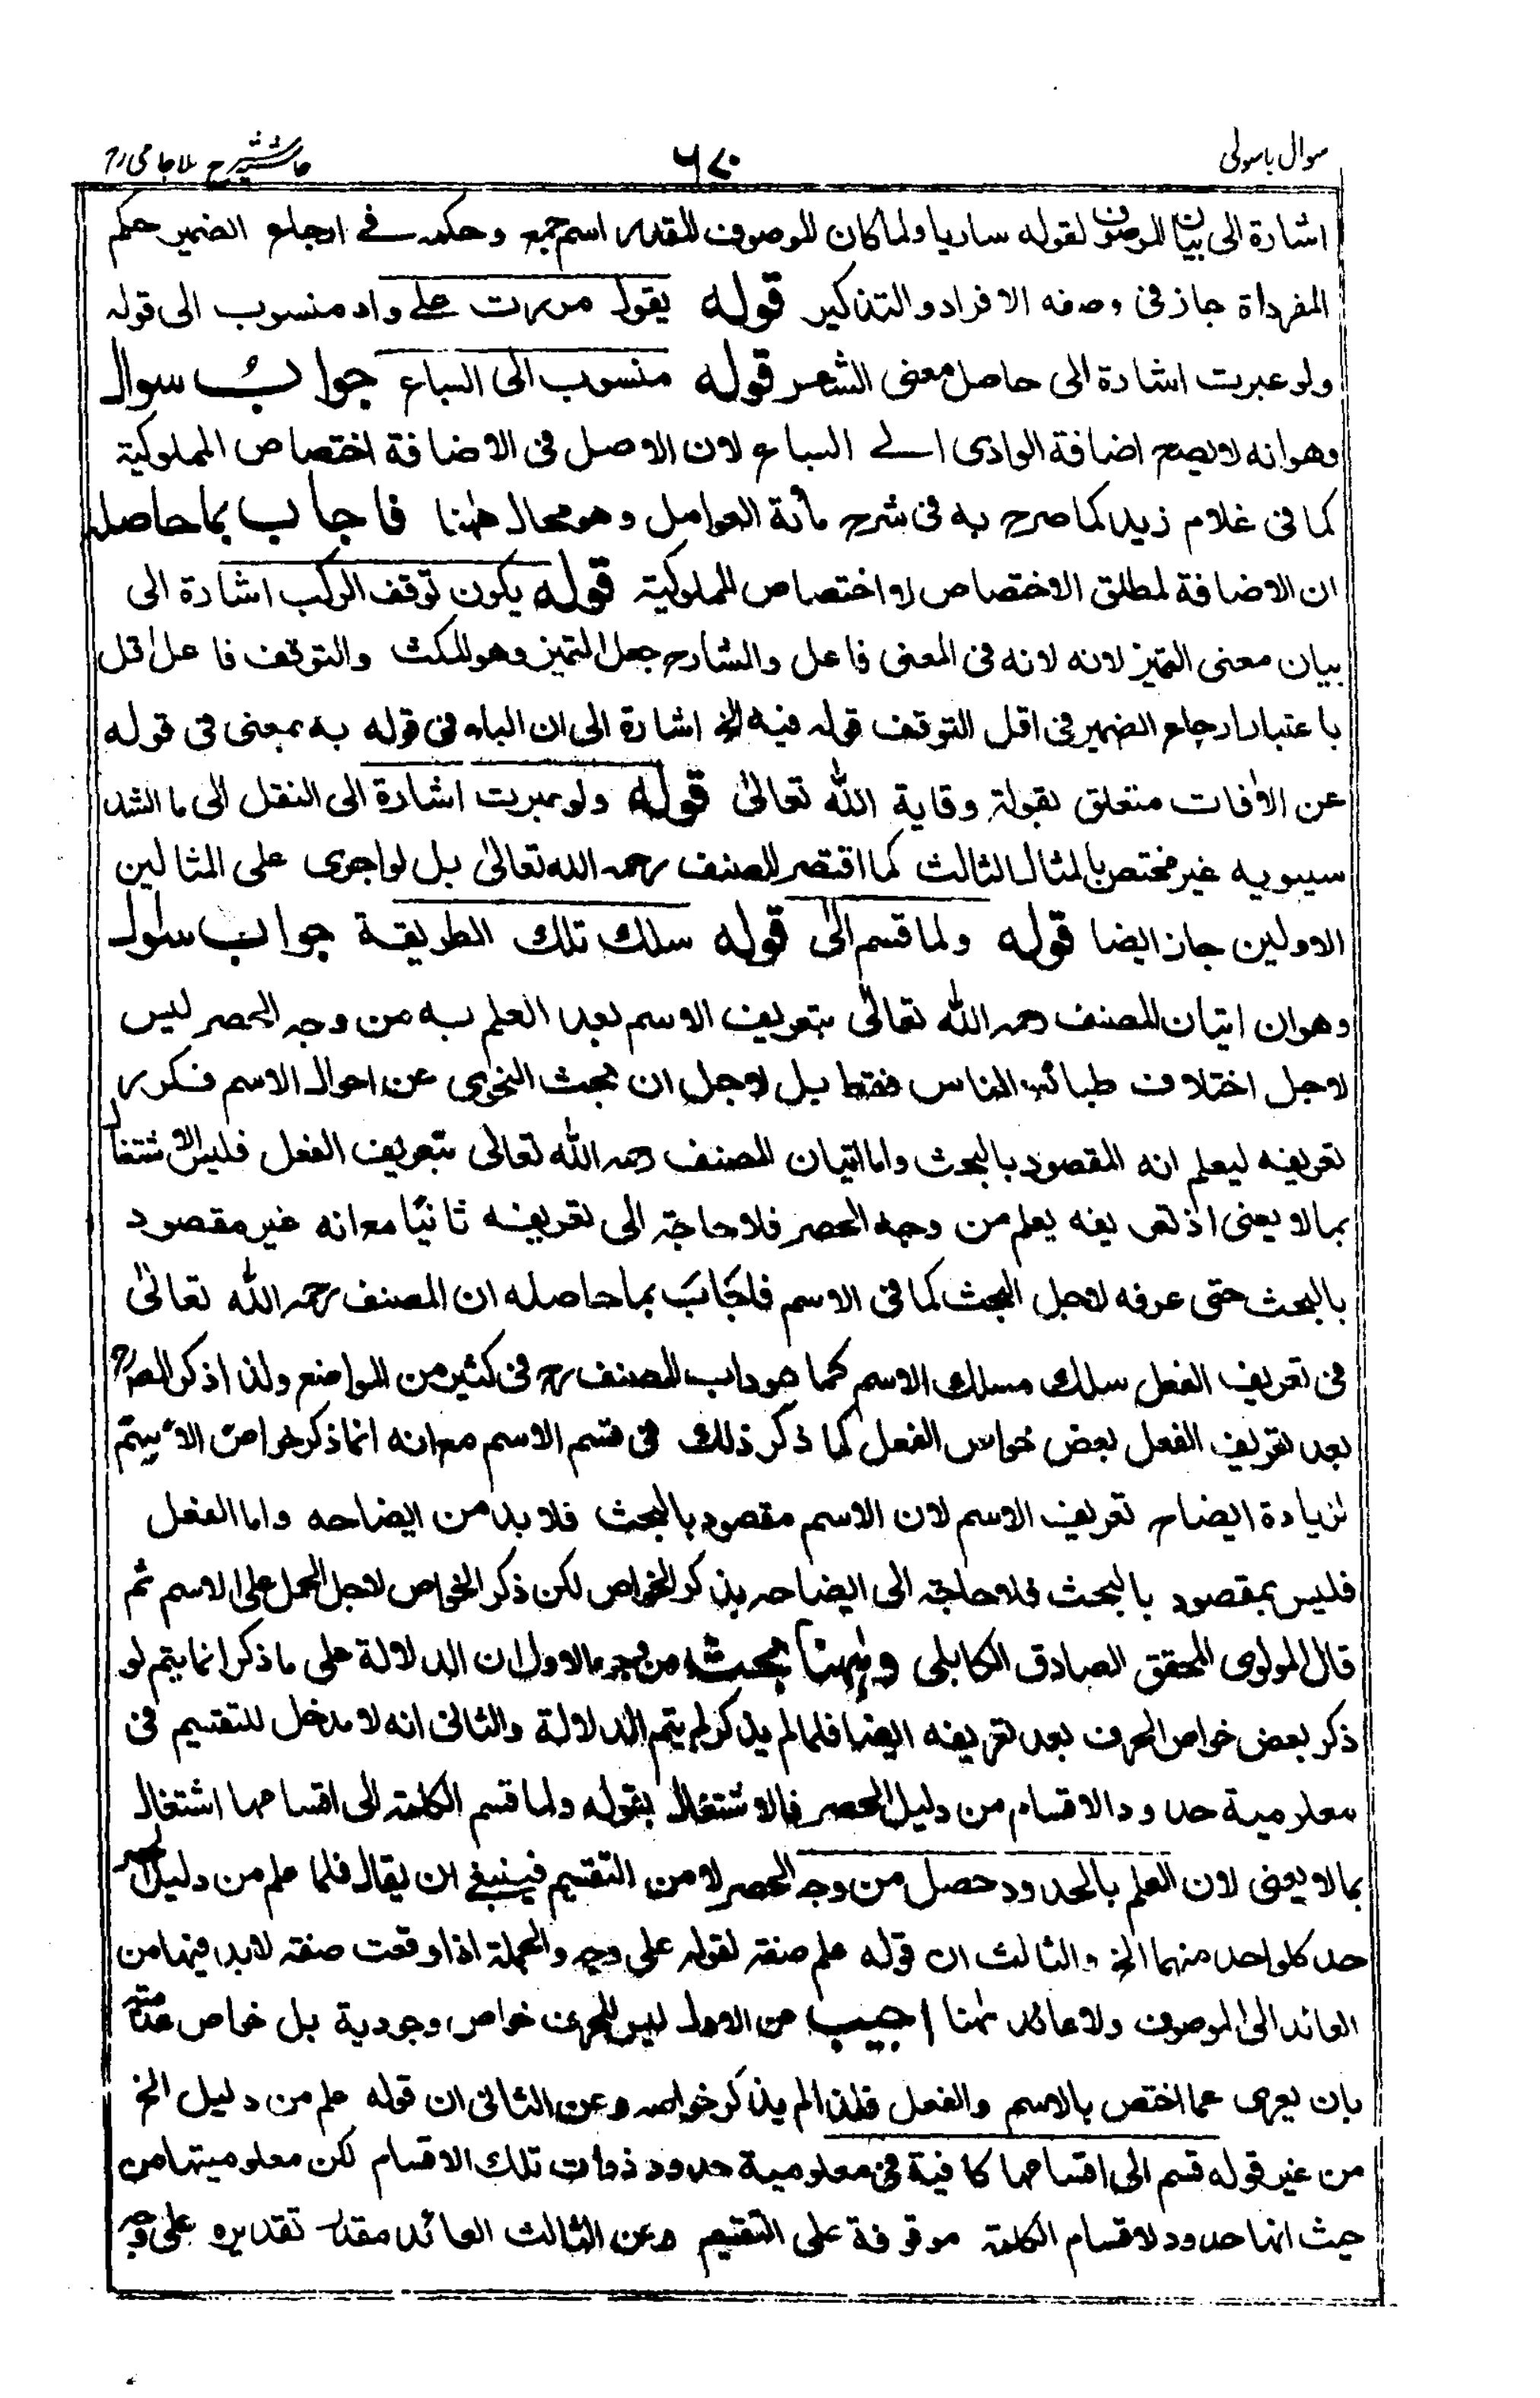 سوال باسولی
۶۷۰
حاشیہ شرح ملا جامی رح
اشارة الى بيان الموصوف لقوله ساريا ولما كان الموصوف المقدر اسم جمع وحكمه فى ارجاع الضمير حكم
المفرداة جاز فى وصفه الافراد والتذكير قوله يقول مررت على واد منسوب الى قوله
ولو عبرت اشارة الى حاصل معنى الشعر قوله منسوب الى السباع جواب سوال
وهو انه لا يصح اضافة الوادى الى السباع لان الاصل فى الاضافة اختصاص المملوكية
كما فى غلام زيد كما صرح به فى شرح مأة العوامل وهو محال ههنا فاجاب بما حاصله
ان الاضافة لمطلق الاختصاص لا اختصاص المملوكية قوله يكون توقف الركب اشارة الى
بيان معنى التميز لانه لانه فى المعنى فاعل والشارح جعل التميز وهو المكث والتوقف فاعل اقل
باعتبار ارجاع الضمير فى اقل التوقف قوله فيه الخ اشارة الى ان الباء فى قوله به بمعنى فى قوله
عن الأفات متعلق بقوله وقاية الله تعالى قوله ولو عبرت اشارة الى النقل الى ما انشد
سيبويه غير مختص بالمثال الثالث كما اقتصر المصنف رحمه الله تعالى بل لو اجرى على المثالين
الاولين جاز ايضا قوله ولما قسم الى قوله سلك تلك الطريقة جواب سوال
وهو ان اتيان المصنف رحمه الله تعالى بتعريف الاسم بعد العلم به من وجه الحصر ليس
لاجل اختلاف طبائع الناس فقط بل لاجل ان بحث النحوى عن احوال الاسم فكرر
تعريفه ليعلم انه المقصود بالبحوث واما اتيان المصنف رحمه الله تعالى بتعريف الفعل فليس الا اشتغال
بما لا يعنى اذ تعريفه يعلم من وجه الحصر فلا حاجة الى تعريفه ثانيًا مع انه غير مقصود
بالبحث حتى عرفه لاجل البحث كما فى الاسم فاجاب بما حاصله ان المصنف رحمه الله تعالى
فى تعريف الفعل سلك مسلك الاسم كما هو داب المصنف رح فى كثير من المواضع ولذا ذكر المصـ رح
بعد تعريف الفعل بعض خواص الفعل كما ذكر ذلك فى قسم الاسم مع انه انما ذكر خواص الاسم ثم
لزيادة ايضاح تعريف الاسم لان الاسم مقصود بالبحث فلا بد من ايضاحه واما الفعل
فليس بمقصود بالبحث فلا حاجة الى ايضاحه بذكر الخواص لكن ذكر الخواص لاجل الحمل على الاسم ثم
قال المولوى المحقق الصادق الكابلى وههنا بحث من وجوه الاول ان الدلالة على ما ذكر انما يتم لو
ذكر بعض خواص الحرف بعد تعريفه ايضا فلما لم يذكر لم يتم الدلالة والثانى انه لا مدخل للتقسيم فى
معلومية حدود الاقسام من دليل الحصر فالاشتغال بقوله ولما قسم الكلمة الى اقسامها اشتغال
بما لا يعنى لان العلم بالحدود حصل من وجه الحصر لا من التقسيم فينبغى ان يقال فلما علم من دليل الحصر
حد كل واحد منهما الخ والثالث ان قوله علم صفة لقوله على وجه والجملة اذا وقعت صفة لابد فيها من
العائد الى الموصوف ولا عائد ههنا اجيب عن الاول ليس للحرف خواص وجودية بل خواص عدمية
بان يعرى عما اختص بالاسم والفعل فلذا لم يذكر خواصه وعن الثانى ان قوله علم من دليل الخ
من غير قوله قسم الى اقسامها كافية فى معلومية حدود ذوات تلك الاقسام لكن معلوميتها من
حيث انها حدود لاقسام الكلمة موقوفة على التقسيم وعن الثالث العائد مقدر تقديره على وجه